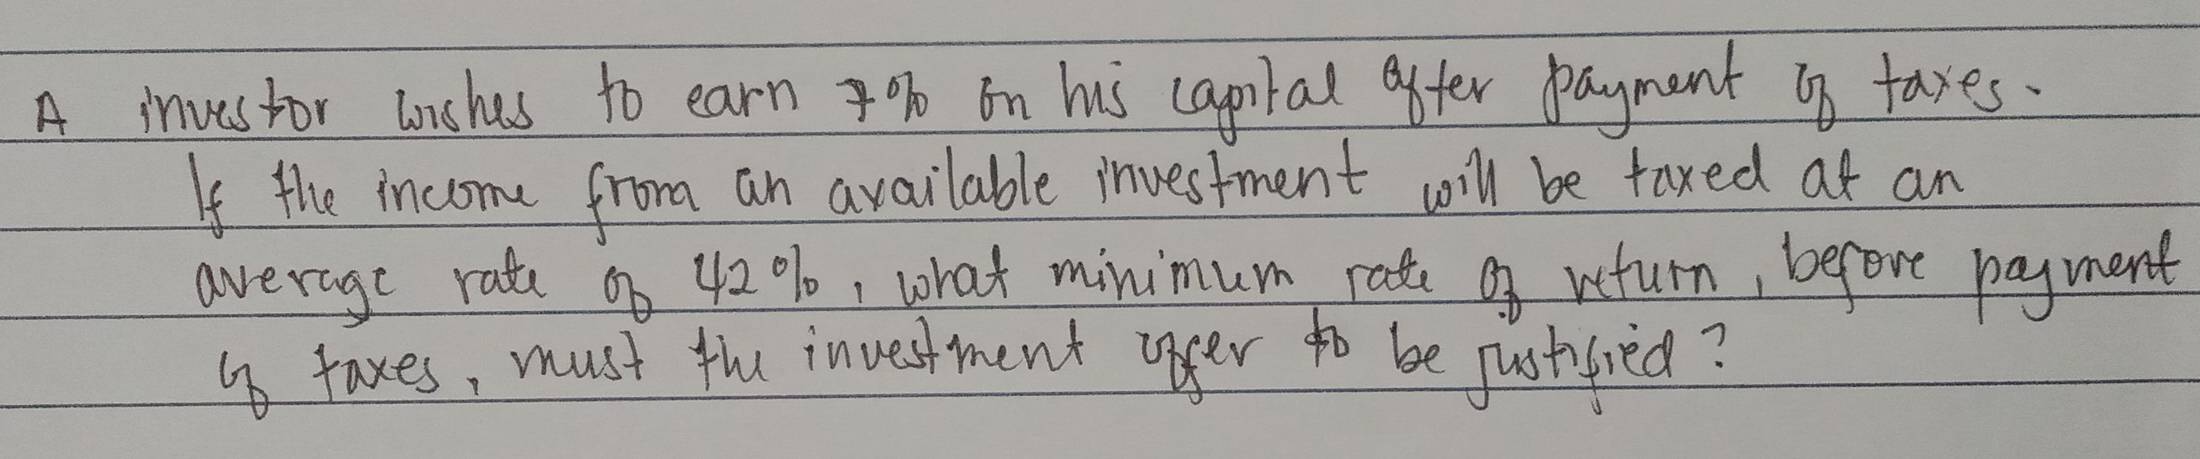 A investor wishes to earn 7% on his capital after payment of taxes.
If the income from an available investment will be taxed at an
average rate of 42%, what minimum rate of return, before payment
of taxes, must the investment offer to be justified?